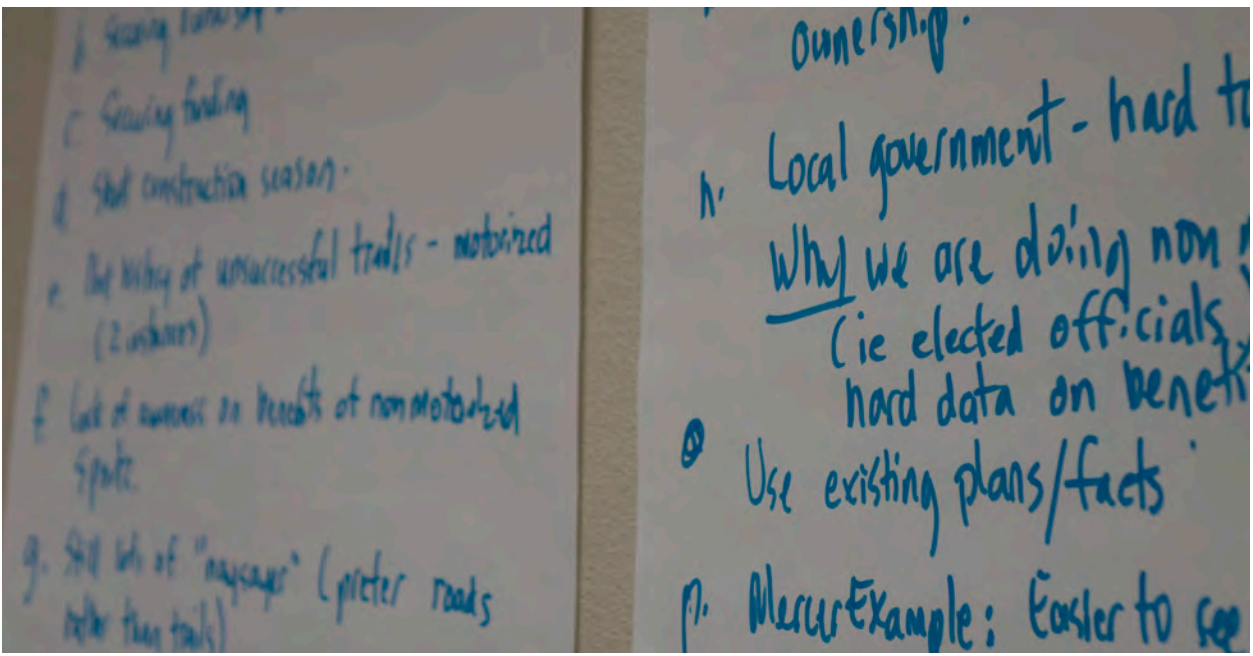 b Securing
c Securing funding
d Short construction season.
e. Past history of unsuccessful trails - motorized
(2 instances)
f Lack of awareness on benefits of nonmotorized
Sports.
g. Still lots of "naysayers" (prefer roads
rather than trails)
ownership.
h. Local government - hard to
Why we are doing non
(ie elected officials,
hard data on
Use existing plans/facts
Mercer Example: Easier to see